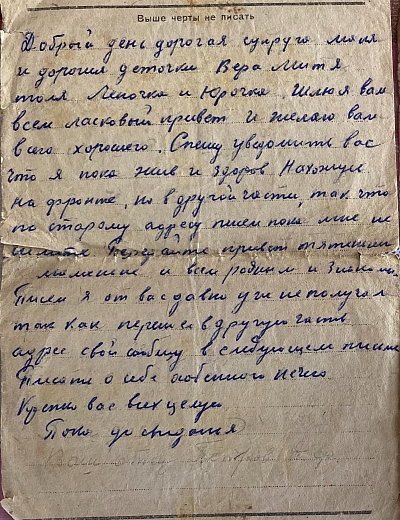 Выше черты не писать
Добрый день дорогая супруга моя
и дорогие деточки Вера Митя
толя Леночка и Юрочка. Шлю я вам
всем ласковый привет и желаю вам
всего хорошего. Спешу уведомить вас
что я пока жив и здоров Нахожусь
на фронте, но в другой части, так что
по старому адресу писем пока мне не
пишите Передайте привет тятеньке
маменьке и всем родным и знаком
Писем я от вас давно уже не получал
так как перешел в другую часть
адрес свой сообщу в следующем письме
Писать о себе особенного нечего
Крепко вас всех целую
Пока до свидания
Ваш отец